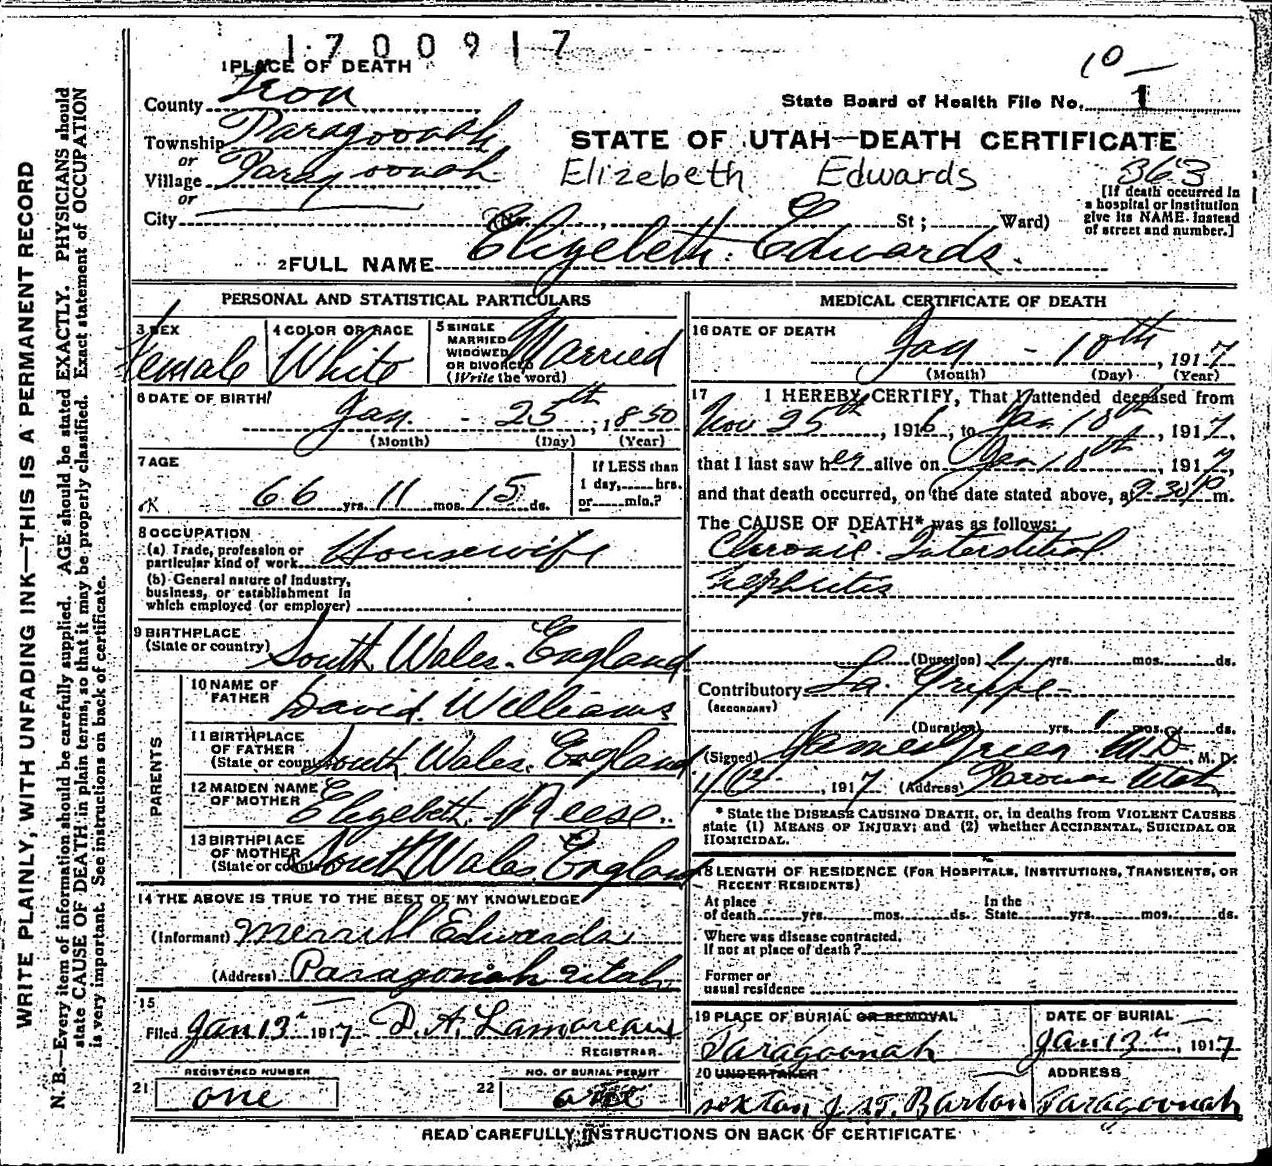 1700917
10 —
1 PLACE OF DEATH
County Iron
State Board of Health File No. 1
Township Paragoonah
or
Village Paragoonah
or
City
STATE OF UTAH—DEATH CERTIFICATE
Elizebeth Edwards
363
[If death occurred in
a hospital or institution
give its NAME. instead
of street and number.]
(No. , St ; Ward)
2 FULL NAME Elizebeth Edwards.
PERSONAL AND STATISTICAL PARTICULARS
3 SEX
Female
4 COLOR OR RACE
White
5 SINGLE
MARRIED
WIDOWED
OR DIVORCED
(Write the word)
Married
6 DATE OF BIRTH
Jan. - 25th, 1850
(Month) (Day) (Year)
7 AGE
66 yrs. 11 mos. 15 ds.
If LESS than
1 day, hrs.
or min.?
8 OCCUPATION
(a) Trade, profession or
particular kind of work Housewife
(b) General nature of industry,
business, or establishment in
which employed (or employer)
9 BIRTHPLACE
(State or country) South Wales. England
PARENTS
10 NAME OF
FATHER David Williams
11 BIRTHPLACE
OF FATHER
(State or country) South Wales. England
12 MAIDEN NAME
OF MOTHER Elizebeth Reese.
13 BIRTHPLACE
OF MOTHER
(State or country) South Wales England
14 THE ABOVE IS TRUE TO THE BEST OF MY KNOWLEDGE
(Informant) Merrill Edwards
(Address) Paragonah Utah
15
Filed Jan 13" 1917 D. A. Lamoreaux
REGISTRAR.
21 REGISTERED NUMBER
one
22 NO. OF BURIAL PERMIT
one
MEDICAL CERTIFICATE OF DEATH
16 DATE OF DEATH
Jan - 10th, 1917
(Month) (Day) (Year)
17 I HEREBY CERTIFY, That I attended deceased from
Nov 25th, 1916, to Jan 10th, 1917,
that I last saw her alive on Jan 10th, 1917,
and that death occurred, on the date stated above, at 9-30 P m.
The CAUSE OF DEATH* was as follows:
Chronic. Interstitial
Nephritis
(Duration) yrs. mos. ds.
Contributory La Grippe
(SECONDARY)
(Duration) yrs. 1 mos. ds.
(Signed) James Green M D M. D.
1/12, 1917 (Address) Parowan Utah
* State the DISEASE CAUSING DEATH, or, in deaths from VIOLENT CAUSES
state (1) MEANS OF INJURY; and (2) whether ACCIDENTAL, SUICIDAL OR
HOMICIDAL.
18 LENGTH OF RESIDENCE (FOR HOSPITALS, INSTITUTIONS, TRANSIENTS, OR
RECENT RESIDENTS)
At place
of death yrs. mos. ds.
In the
State yrs. mos. ds.
Where was disease contracted,
If not at place of death?
Former or
usual residence
19 PLACE OF BURIAL OR REMOVAL
Paragoonah
DATE OF BURIAL
Jan 13", 1917
20 UNDERTAKER
sexton J. Barton
ADDRESS
Paragoonah
READ CAREFULLY INSTRUCTIONS ON BACK OF CERTIFICATE
WRITE PLAINLY, WITH UNFADING INK—THIS IS A PERMANENT RECORD
N. B.—Every item of information should be carefully supplied. AGE should be stated EXACTLY. PHYSICIANS should
state CAUSE OF DEATH in plain terms, so that it may be properly classified. Exact statement of OCCUPATION
is very important. See instructions on back of certificate.